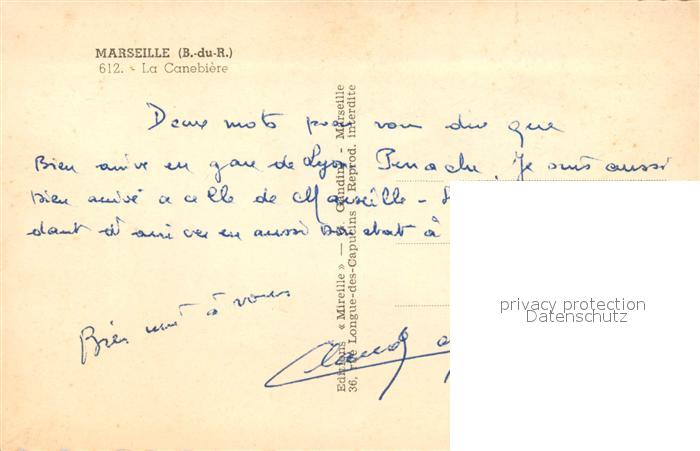 MARSEILLE (B.-du-R.)
612. - La Canebière
Deux mots pour vous dire que
Bien arrivé en gare de Lyon Perrache, Je suis aussi
bien arrivé a celle de Marseille -
dant d'arriver en aussi bon etat à
Bien à vous
Claud
Editions « Mireille » — Gandini - Marseille
36, rue Longue-des-Capucins - Reprod. interdite
privacy protection
Datenschutz